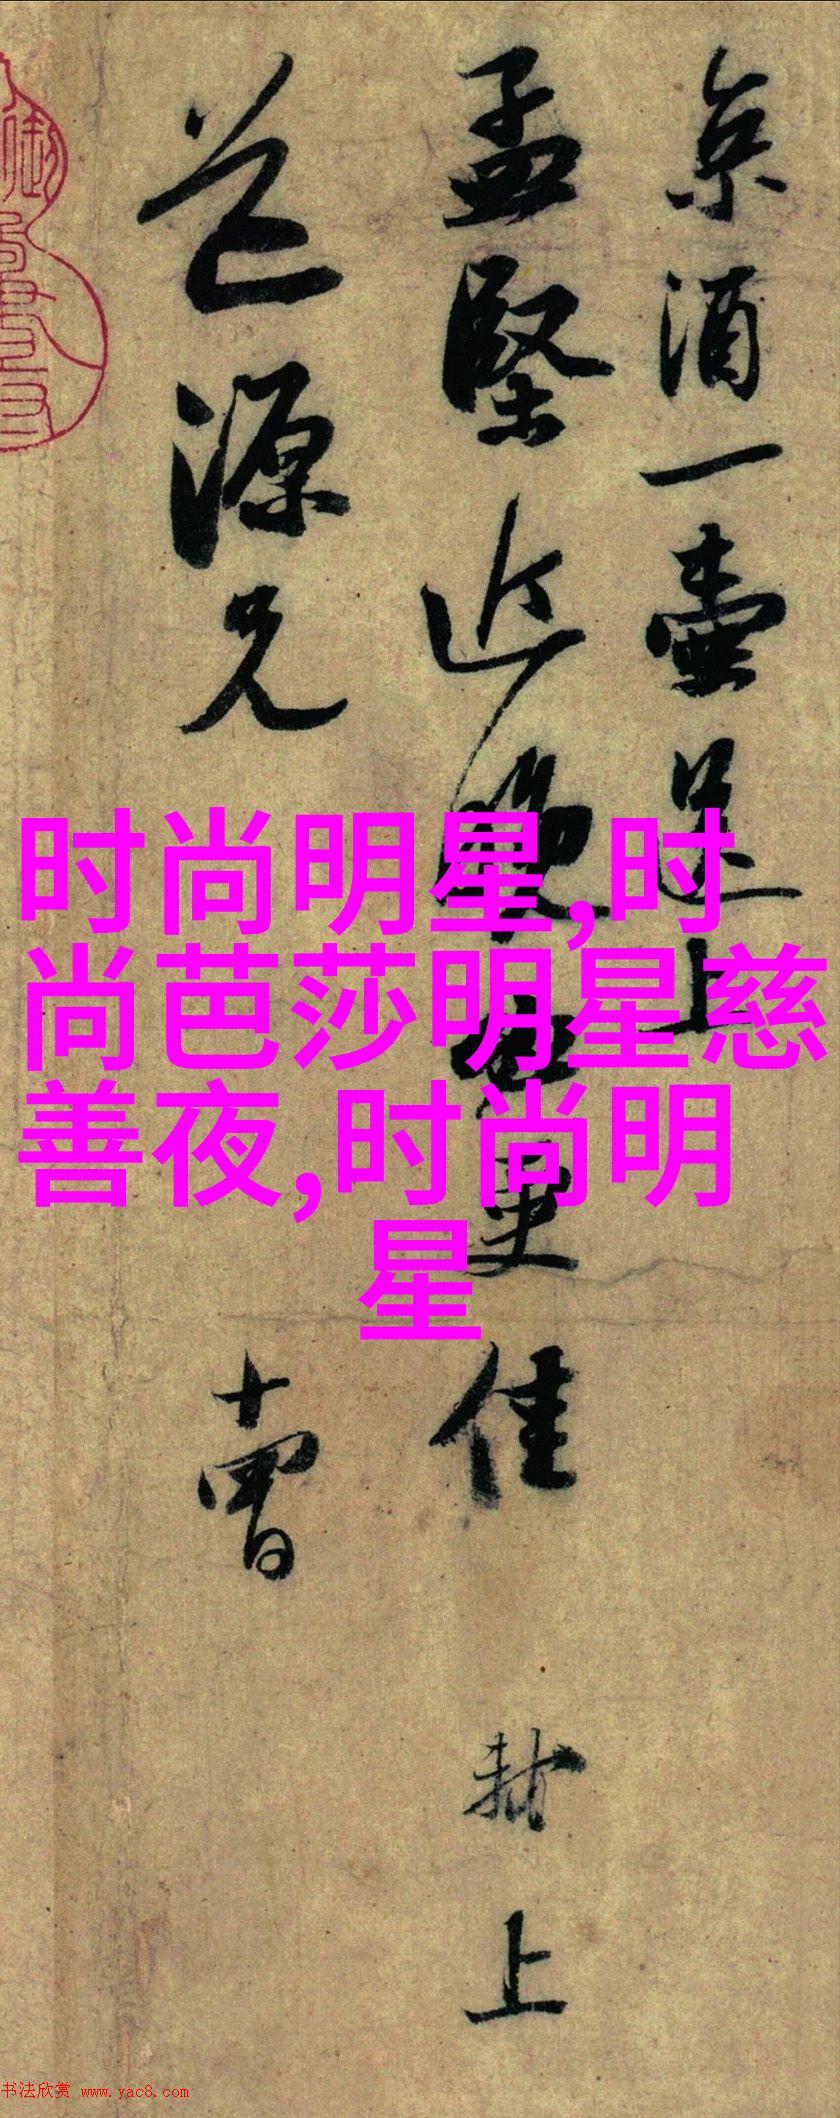 京酒一壺送上
孟堅近晚更佳
上
源兄
十
时尚明星,时
尚芭莎明星慈
善夜,时尚明
星
书法欣赏 www.yac8.com